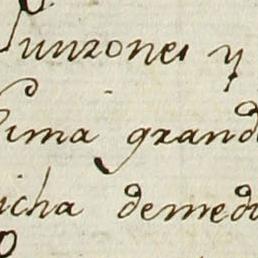 Punzones y
Lima grand
icha demedi